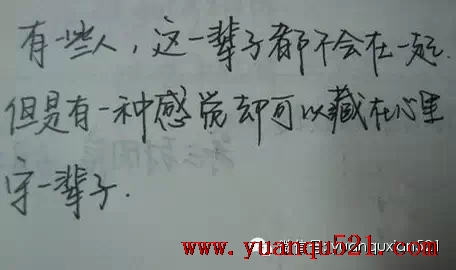 有一些人，这一辈子都不会在一起.
但是有一种感觉却可以藏在心里
守一辈子.
www.yuanqu521.com